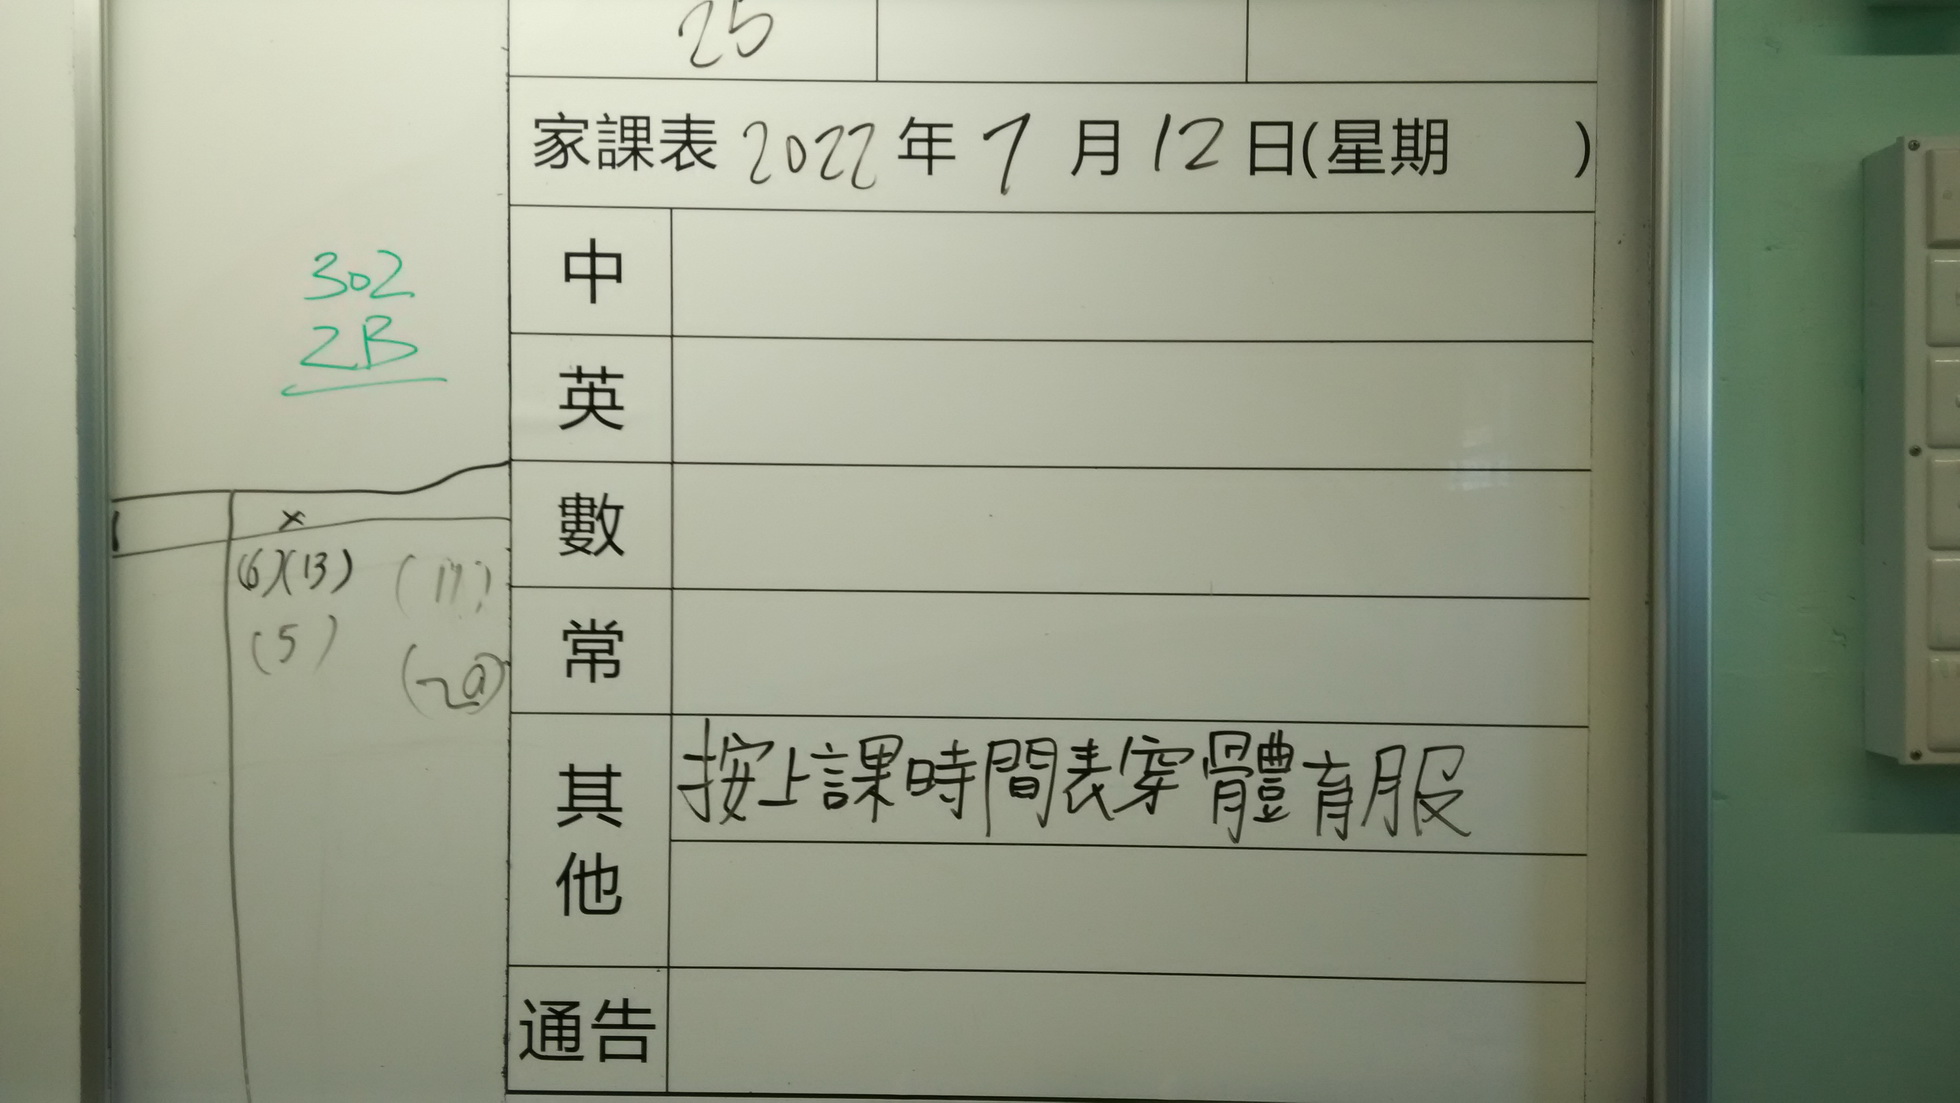 25
家課表 2022 年 7 月 12 日(星期 )
302
2B
中
英
數
×
(6)(13) (11)
(5)
常
其他
按上課時間表穿體育服
通告